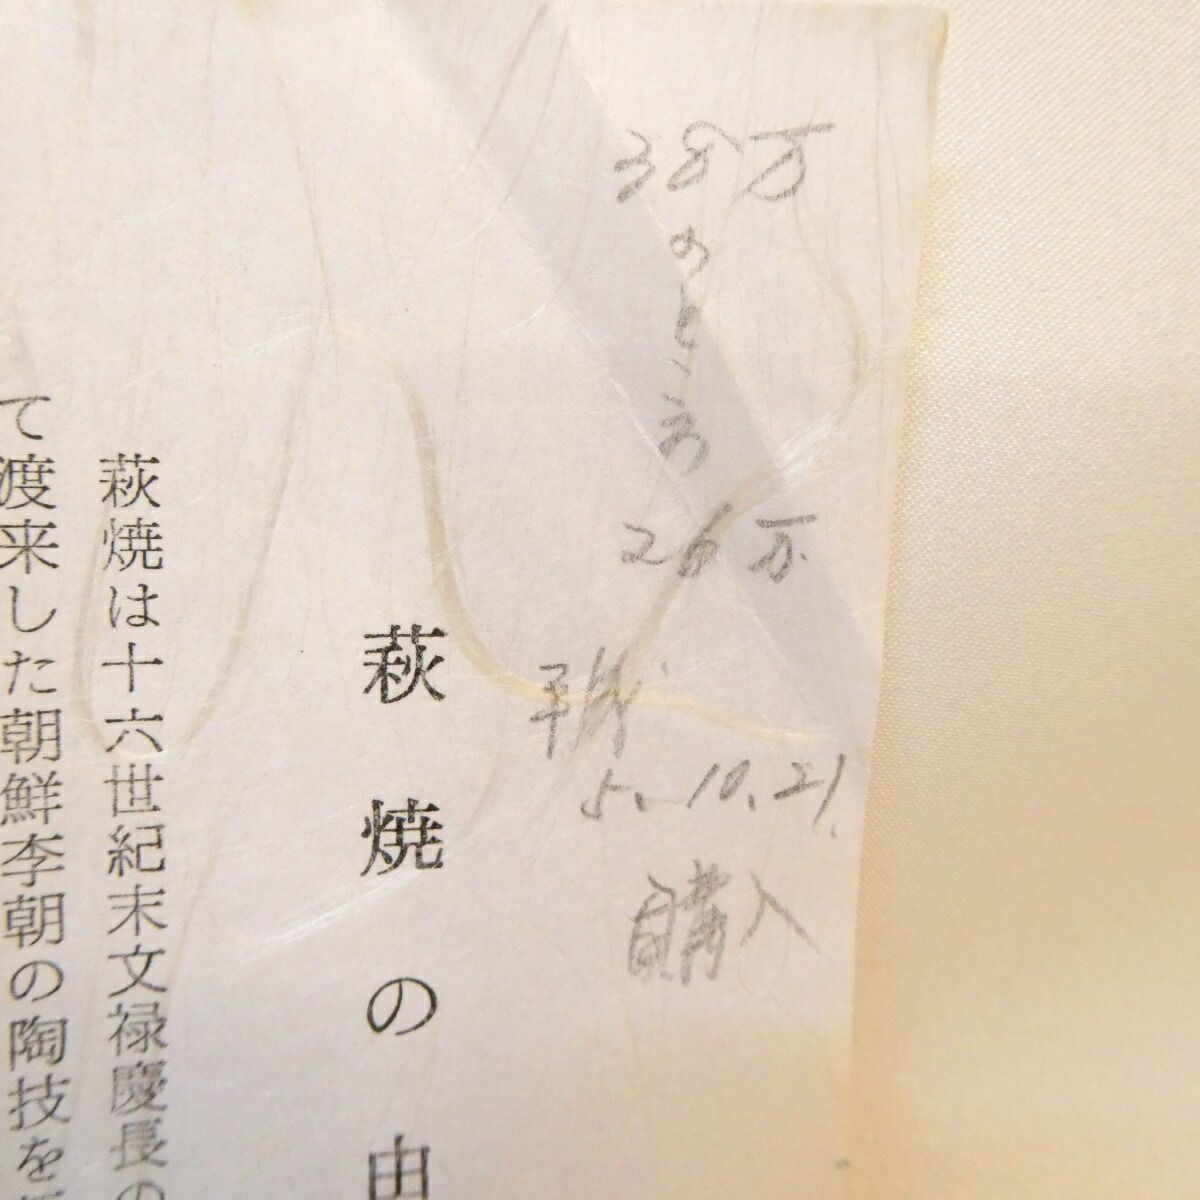 38万
のところ
26万
平成
5.10.21.
購入
萩焼の由
萩焼は十六世紀末文禄慶長の
て渡来した朝鮮李朝の陶技を